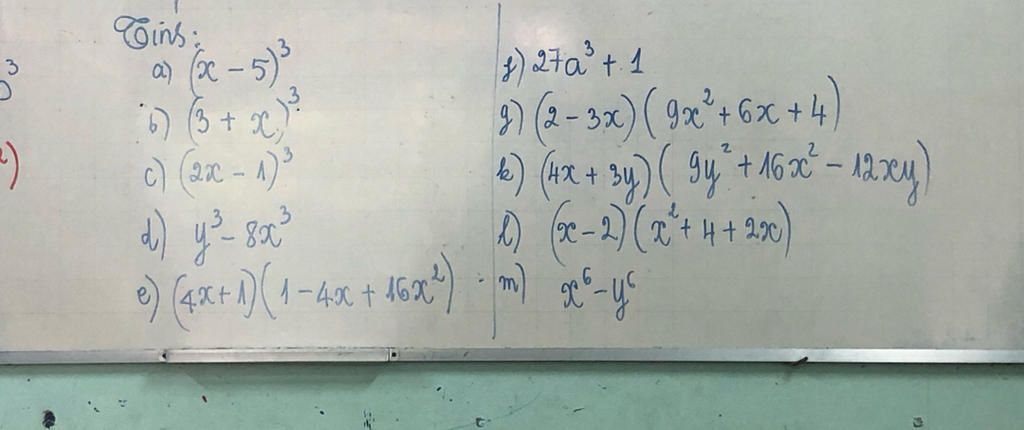 Tính:
a) (x - 5)³
b) (3 + x)³
c) (2x - 1)³
d) y³ - 8x³
e) (4x+1)(1-4x+16x²)
f) 27a³ + 1
g) (2-3x)(9x²+6x+4)
k) (4x+3y)(9y²+16x²-12xy)
l) (x-2)(x²+4+2x)
m) x⁶-y⁶
3
²)